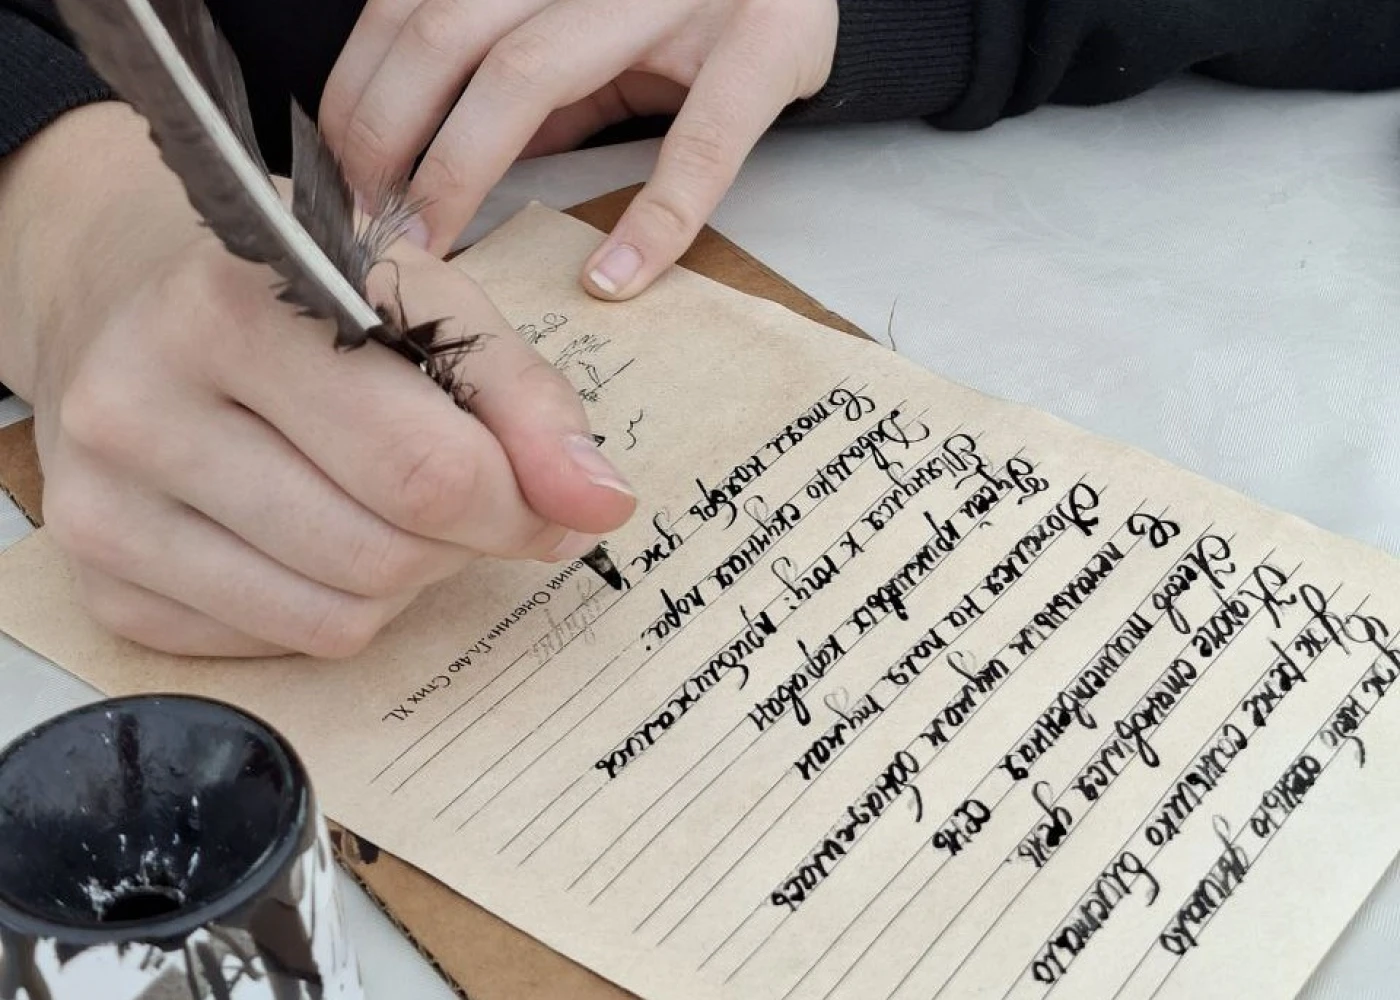 Уж небо осенью дышало
Уж реже солнышко блистало
Короче становился день.
Лесов таинственная сень
С печальным шумом обнажилась
Ложился на поля туман
Гусей крикливых караван
Тянулся к югу: приближалась
Довольно скучная пора:
Стоял ноябрь уж
ений Онегин.Гл.4ю Стих XL